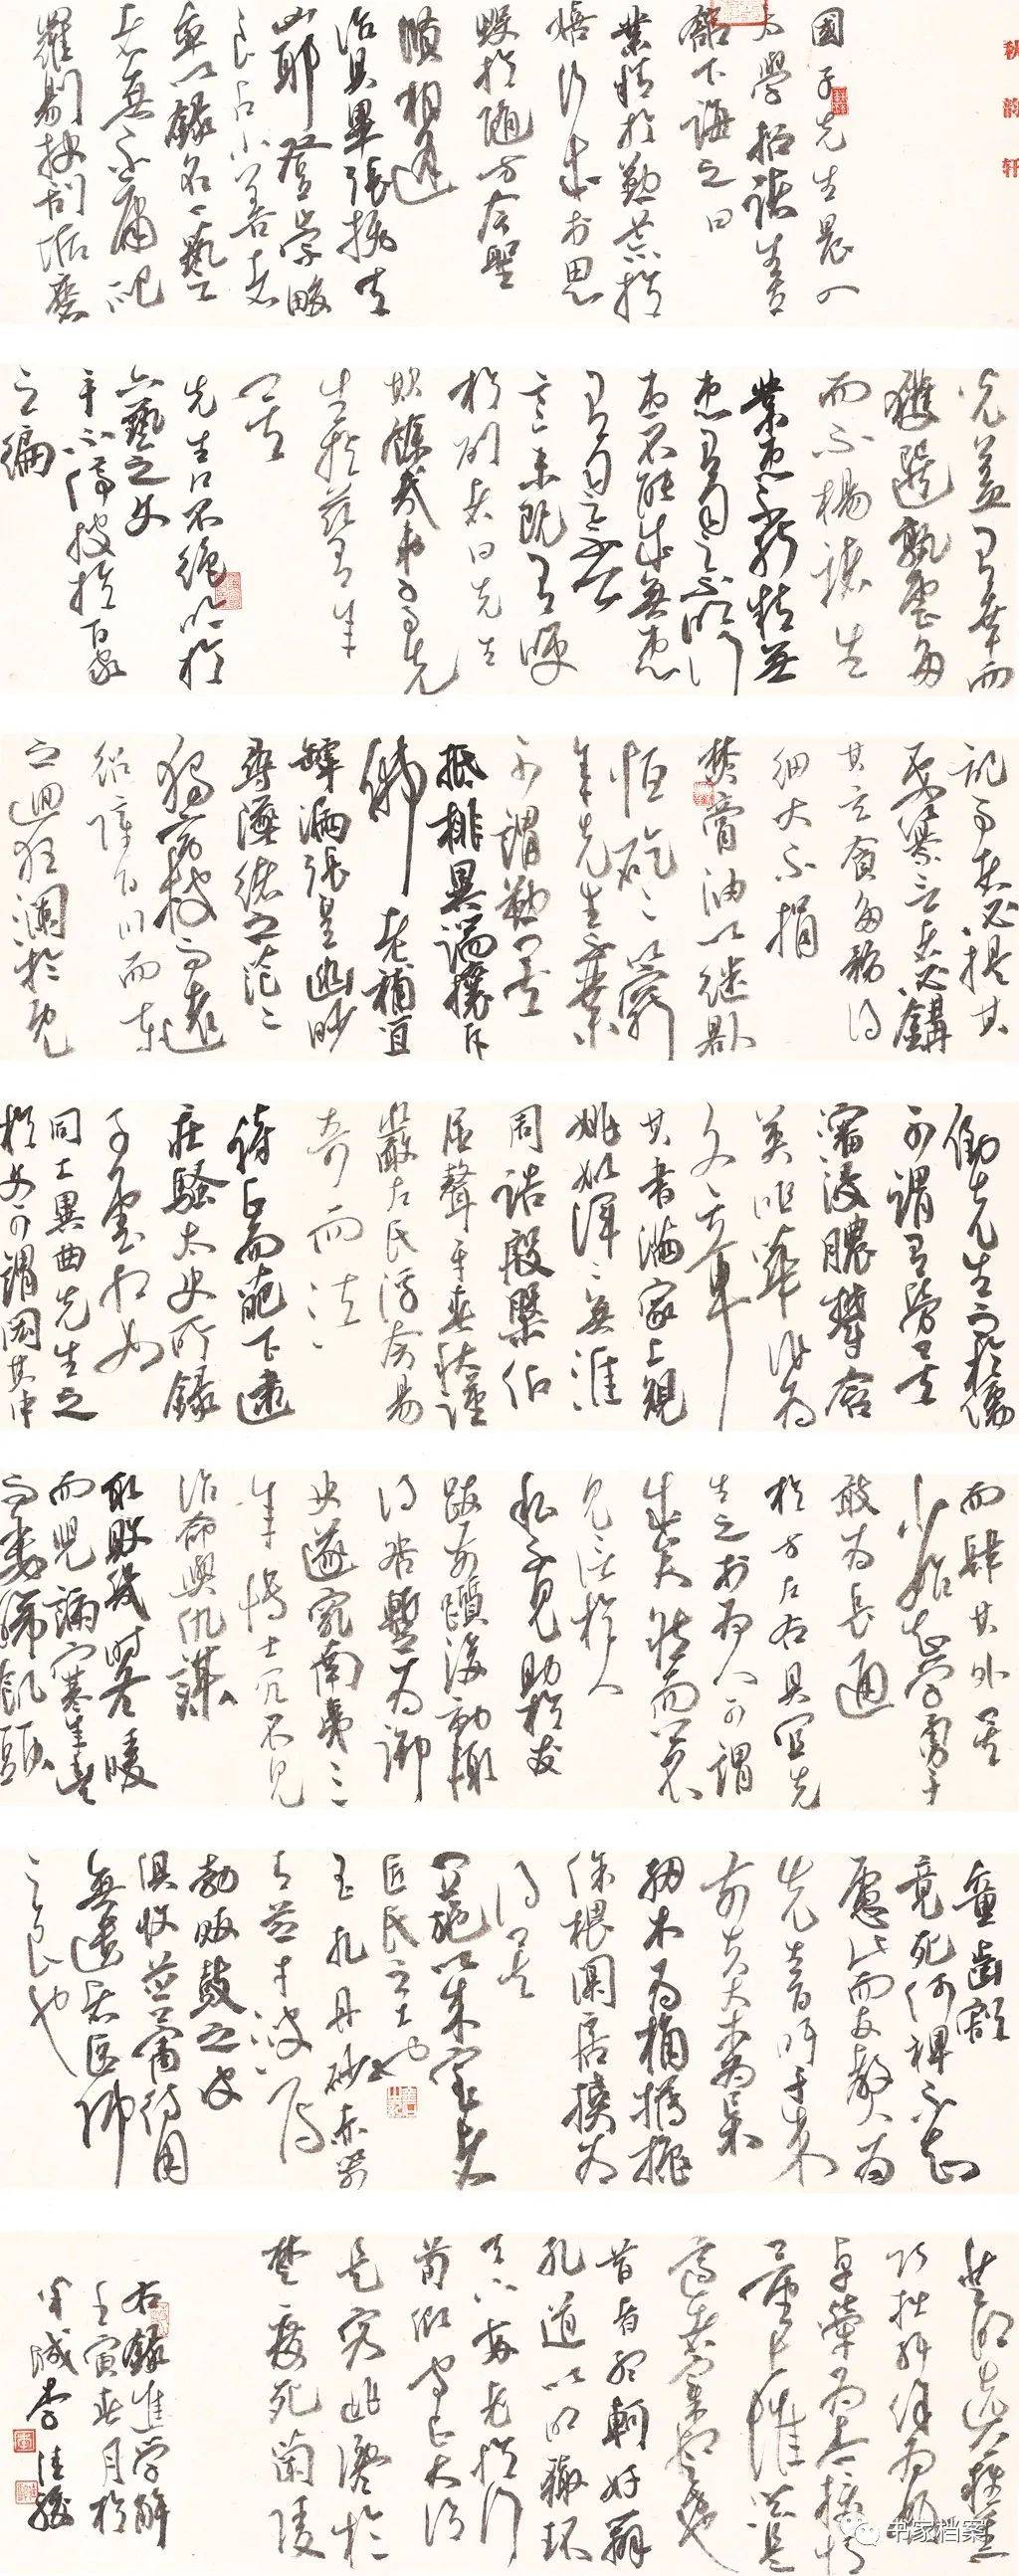 國子先生晨入
太學招諸生立
館下誨之曰
業精於勤荒於
嬉行成於思
毀於隨方今聖
賢相逢
治具畢張拔去
凶邪登崇畯
良占小善者
率以錄名一藝
者無不庸爬
羅剔抉刮垢磨
光蓋有幸而
獲選孰雲多
而不揚諸生
業患不能精無
患有司之不明行
患不能成無患
有司之不公
言未既有笑
於列者曰先生
欺餘哉弟子事先
生於茲有年
矣
先生口不絕吟於
六藝之文
手不停披於百家
之編
記事者必提其
要纂言者必鉤
其玄貪多務得
細大不捐
焚膏油以繼晷
恒矻矻以窮
年先生之業
可謂勤矣
抵排異端攘斥
佛老補苴
罅漏張皇幽眇
尋墜緒之茫茫
獨旁搜而遠
紹障百川而東
之迴狂瀾於既
倒先生之於儒
可謂有勞矣
沉浸醲郁含
英咀華作為
文章
其書滿家上規
姚姒渾渾無涯
周誥殷盤佶
屈聱牙春秋謹
嚴左氏浮誇易
奇而法
詩正而葩下逮
莊騷太史所錄
子雲相如
同工異曲先生之
於文可謂閎其中
而肆其外矣
少始知學勇於
敢為長通
於方左右具宜先
生之於為人可謂
成矣然而公不
見信於人
私不見助於友
跋前躓後動輒
得咎暫為御
史遂竄南夷三
年博士冗不見
治命與仇謀
取敗幾時冬暖
而兒號寒年豐
而妻啼飢頭
童齒豁
竟死何裨不知
慮此而反教人為
先生曰吁子來
前夫大木為杗
細木為桷欂櫨
侏椳闑扂楔各
得其宜
施以成室者
匠氏之工也
玉札丹砂赤箭
青芝牛溲馬
勃敗鼓之皮
俱收並蓄待用
無遺者醫師
之良也
登明選公雜進
巧拙紆徐為妍
卓犖為傑校短
量長惟器是
適者宰相之方也
昔者孟軻好辯
孔道以明轍環
天下卒老於行
荀卿守正大論
是弘逃讒於
楚廢死蘭陵
右錄進學解
壬寅春月於
羊城李佳
书家档案